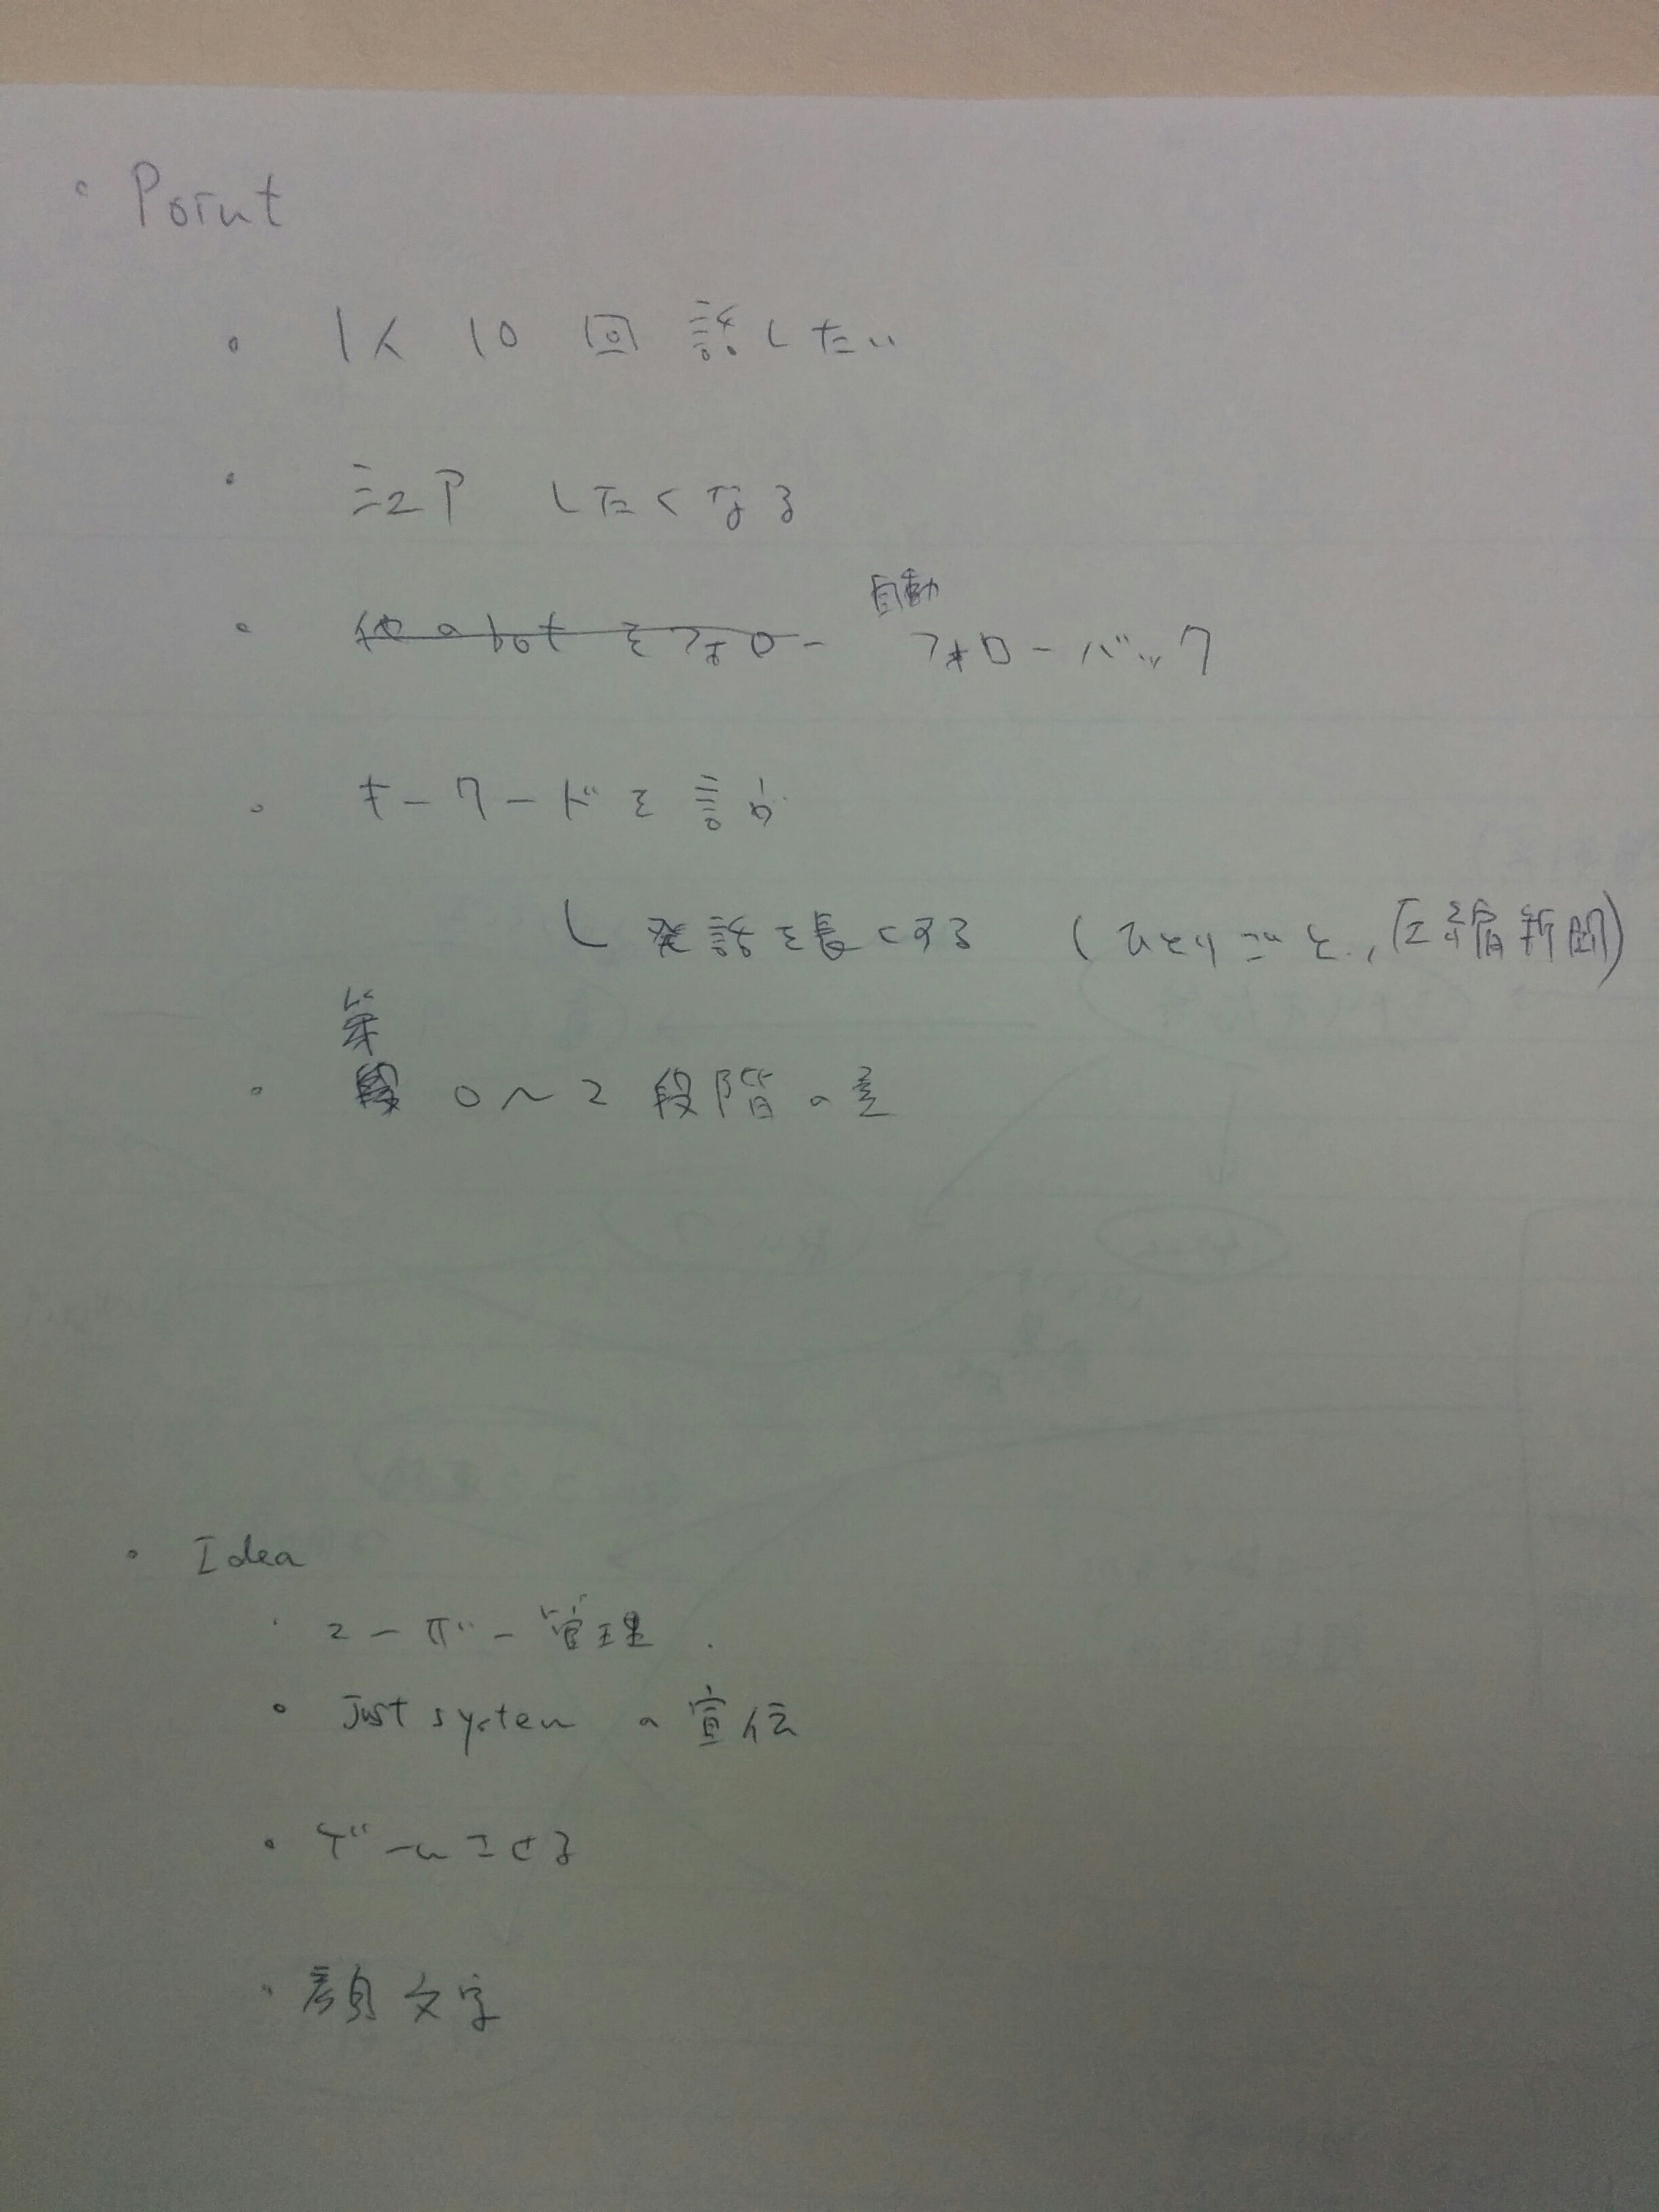 ・Point
・1人 10 回 話したい
・シェア したくなる
・他のbotをフォロー 自動フォローバック
・キーワードを言う
し 発話を長くする (ひとりごと, 圧縮新聞)
・0〜2 段階の差
・Idea
・ユーザー管理
・Just system の宣伝
・ゲームさせる
・顔文字